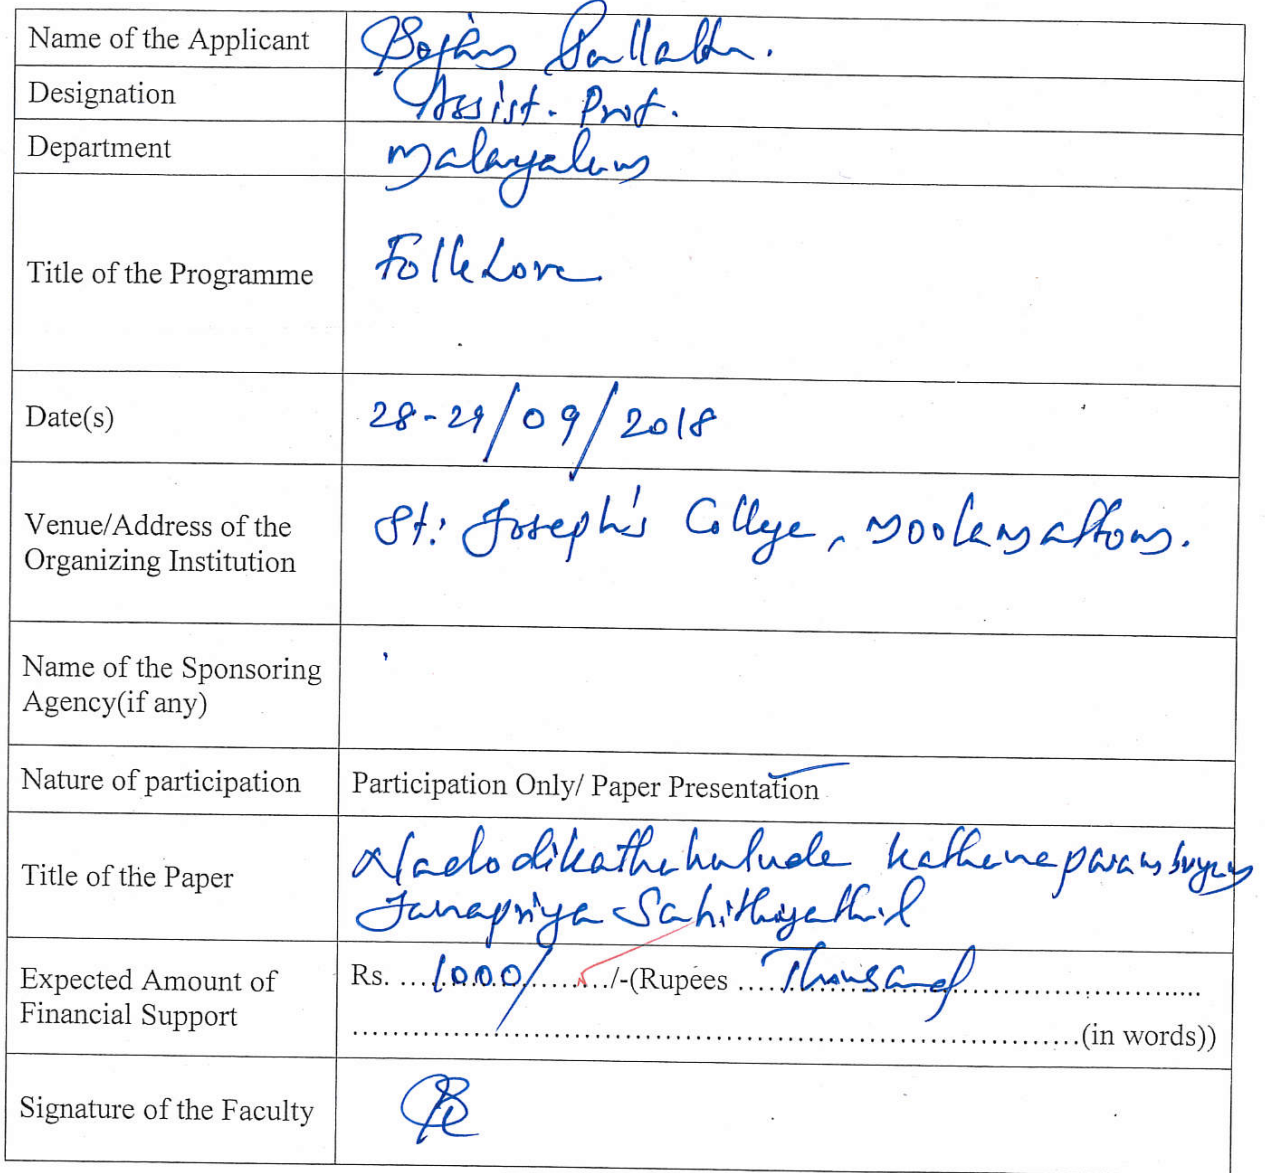 Name of the Applicant
Designation Assist. Prof.
Department Malayalam
Title of the Programme FolkLore
Date(s) 28-29/09/2018
Venue/Address of the
Organizing Institution
St. Joseph's College, Moolamattom.
Name of the Sponsoring
Agency(if any)
Nature of participation Participation Only/ Paper Presentation
Title of the Paper
Janapriya Sahithyathil
Expected Amount of
Financial Support
Rs. ....1000/......../-(Rupees ....Thousand..............................
..............................................................................(in words))
Signature of the Faculty